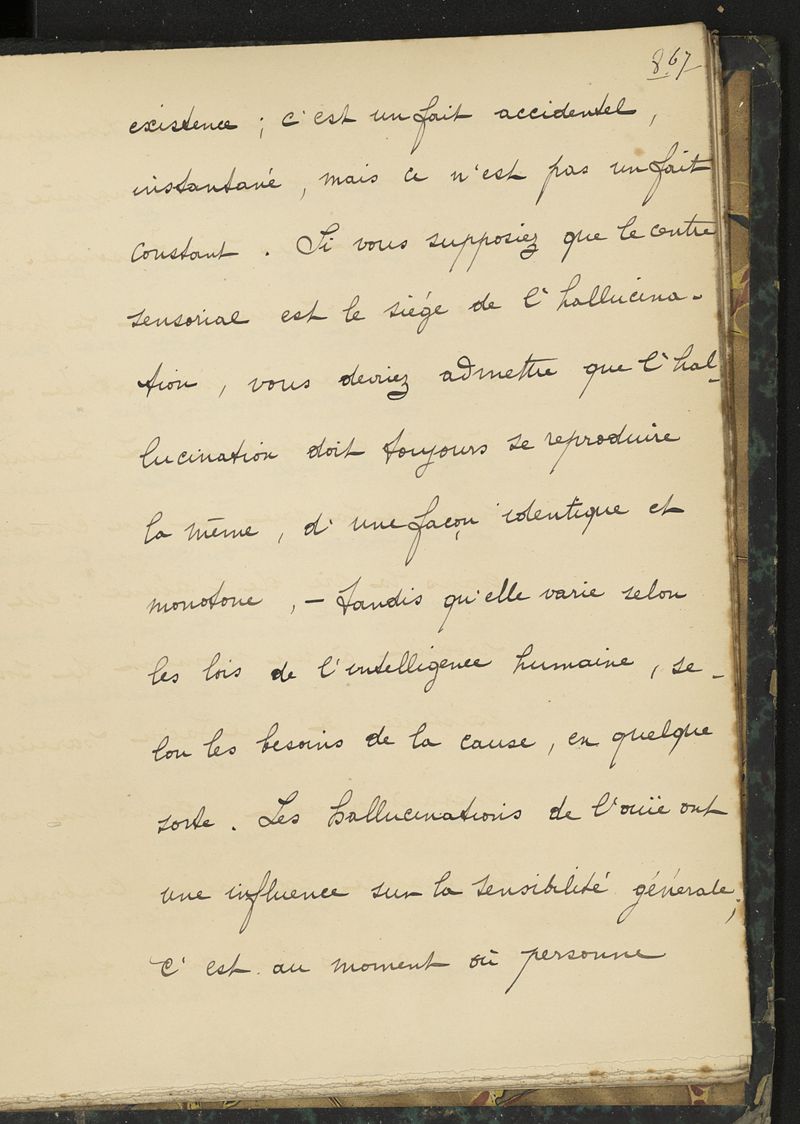 867
existence ; c'est un fait accidentel,
instantané, mais ce n'est pas un fait
constant. Si vous supposiez que le centre
sensoriel est le siége de l'hallucina-
tion, vous devriez admettre que l'hal-
lucination doit toujours se reproduire
la même, d'une façon identique et
monotone, — tandis qu'elle varie selon
les lois de l'intelligence humaine, se-
lon les besoins de la cause, en quelque
sorte. Les hallucinations de l'ouïe ont
une influence sur la sensibilité générale;
C'est au moment où personne